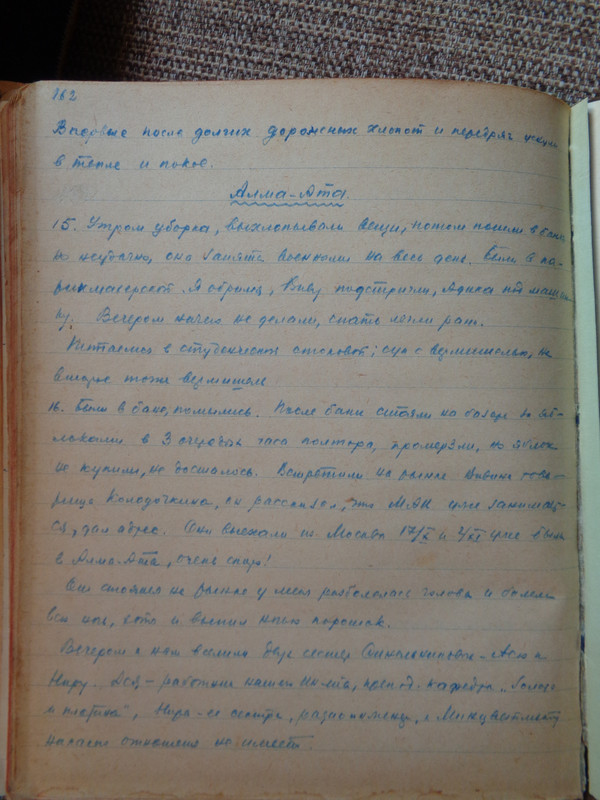 162
Впервые после долгих дорожных хлопот и передряг уснули
в тепле и покое.
Алма-Ата.
15. Утром уборка, выхлопывали вещи, потом пошли в баню,
но неудачно, она занята военными на весь день. Были в па-
рикмахерской. Я обрился, Виву подстригли, Адика под машин-
ку. Вечером ничего не делали, спать легли рано.
Питаемся в студенческой столовой; суп с вермишелью, на
второе тоже вермишель.
16. Были в бане, помылись. После бани стояли на базаре за яб-
локами в 3 очередях часа полтора, промерзли, но яблок
не купили, не досталось. Встретили на рынке това-
рища Колодочкина, он рассказал, что МАИ уже занимает-
ся, дал адрес. Они выехали из Москвы 17/X и 2/XI уже были
в Алма-Ата, очень скоро!
От стояния на рынке у меня разболелась голова и болела
всю ночь, хотя и выпил порошок.
Вечером к нам вселили двух сестер Ася и
Нара. Ася - работник нашего ин-та, препод. кафедры
, Нара - ее сестра,
отношения не имеет.